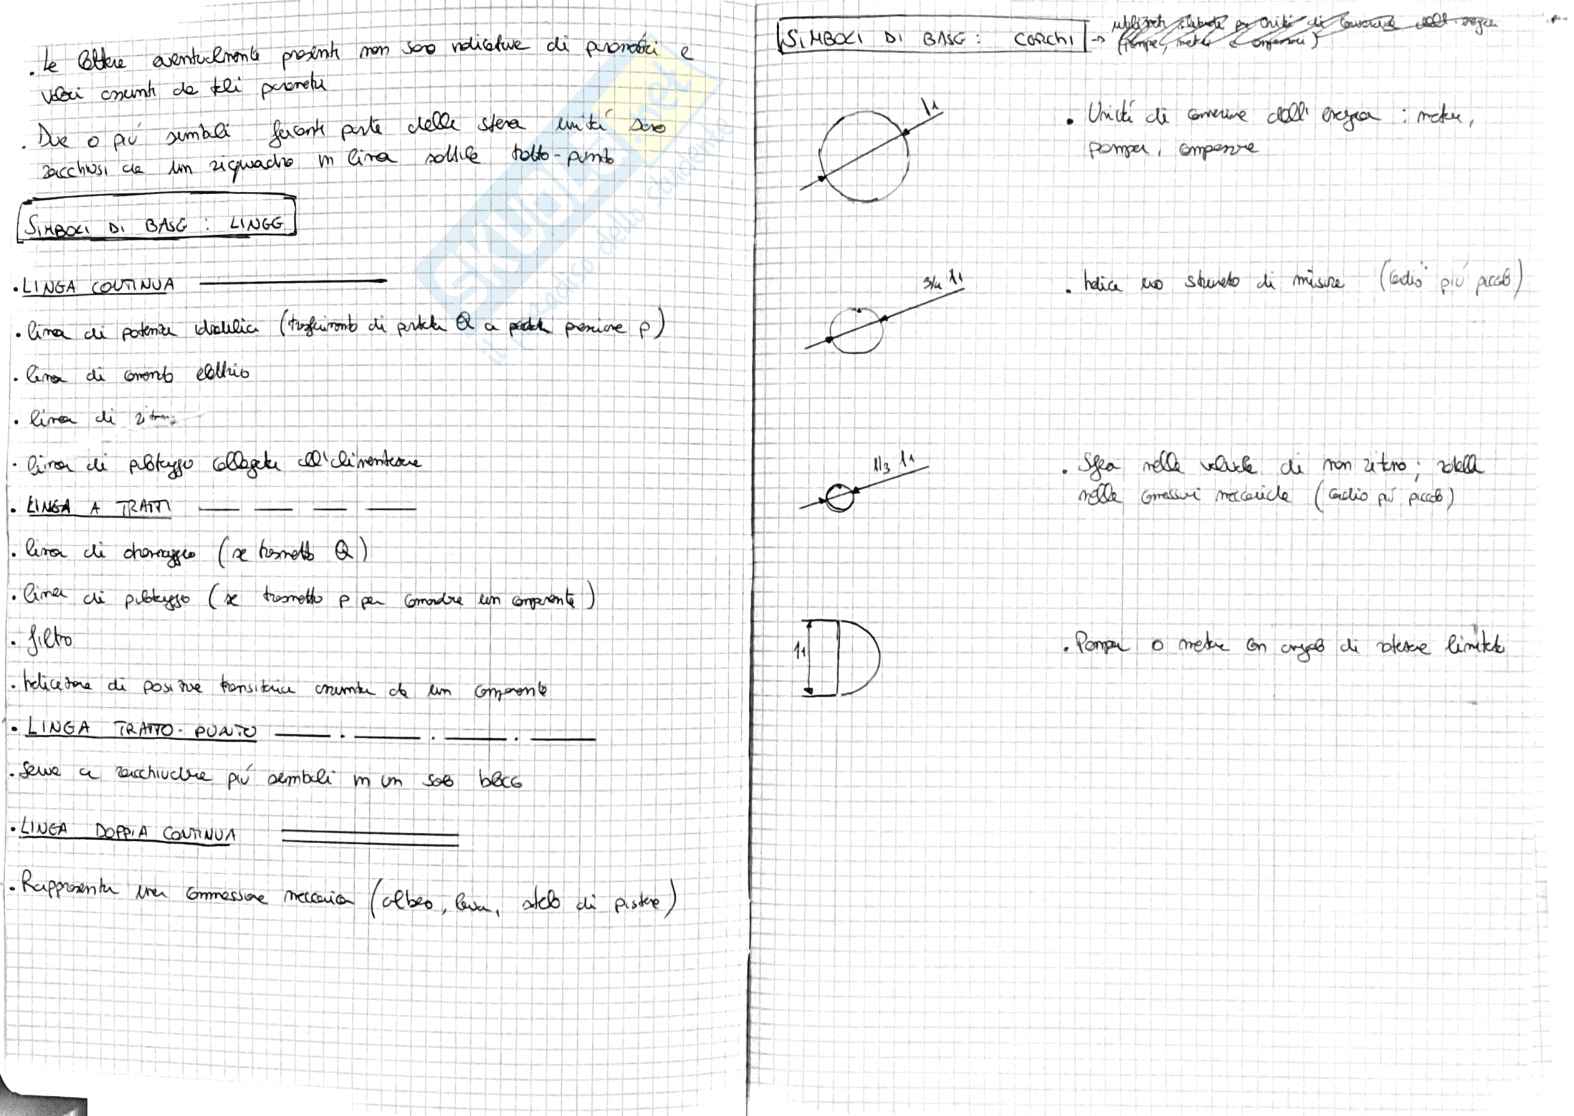 . Le lettere eventualmente presenti non sono indicative di parametri e
valori assunti da tali parametri
. Due o più simboli facenti parte della stessa unità sono
racchiusi da un riquadro in linea sottile tratto-punto
SIMBOLI DI BASE : LINEE
. LINEA CONTINUA
. linea di potenza idraulica (trasferimento di portata Q a pressione p)
. linea di comando elettrico
. linea di
. linea di pilotaggio collegata all'alimentazione
. LINEA A TRATTI
. linea di drenaggio (se trasmetto Q)
. linea di pilotaggio (se trasmetto p per comandare un componente)
. filtro
. Indicazione di posizione transitoria assunta da un componente
. LINEA TRATTO-PUNTO
. Serve a racchiudere più simboli in un solo blocco
. LINEA DOPPIA CONTINUA
. Rappresenta una connessione meccanica (albero, leva, stelo di pistone)
SKUOLA.net
il paradiso dello studente
SIMBOLI DI BASE : CERCHI →
(pompe, motori e compressori)
l1
. Unità di conversione dell'energia : motori,
pompe, compressore
3/4 l1
. Indica uno strumento di misura (cerchio più piccolo)
1/3 l1
. Sfera nelle valvole di non ritorno; rotella
nelle connessioni meccaniche (cerchio più piccolo)
l1
. Pompa o motore con angolo di rotazione limitato